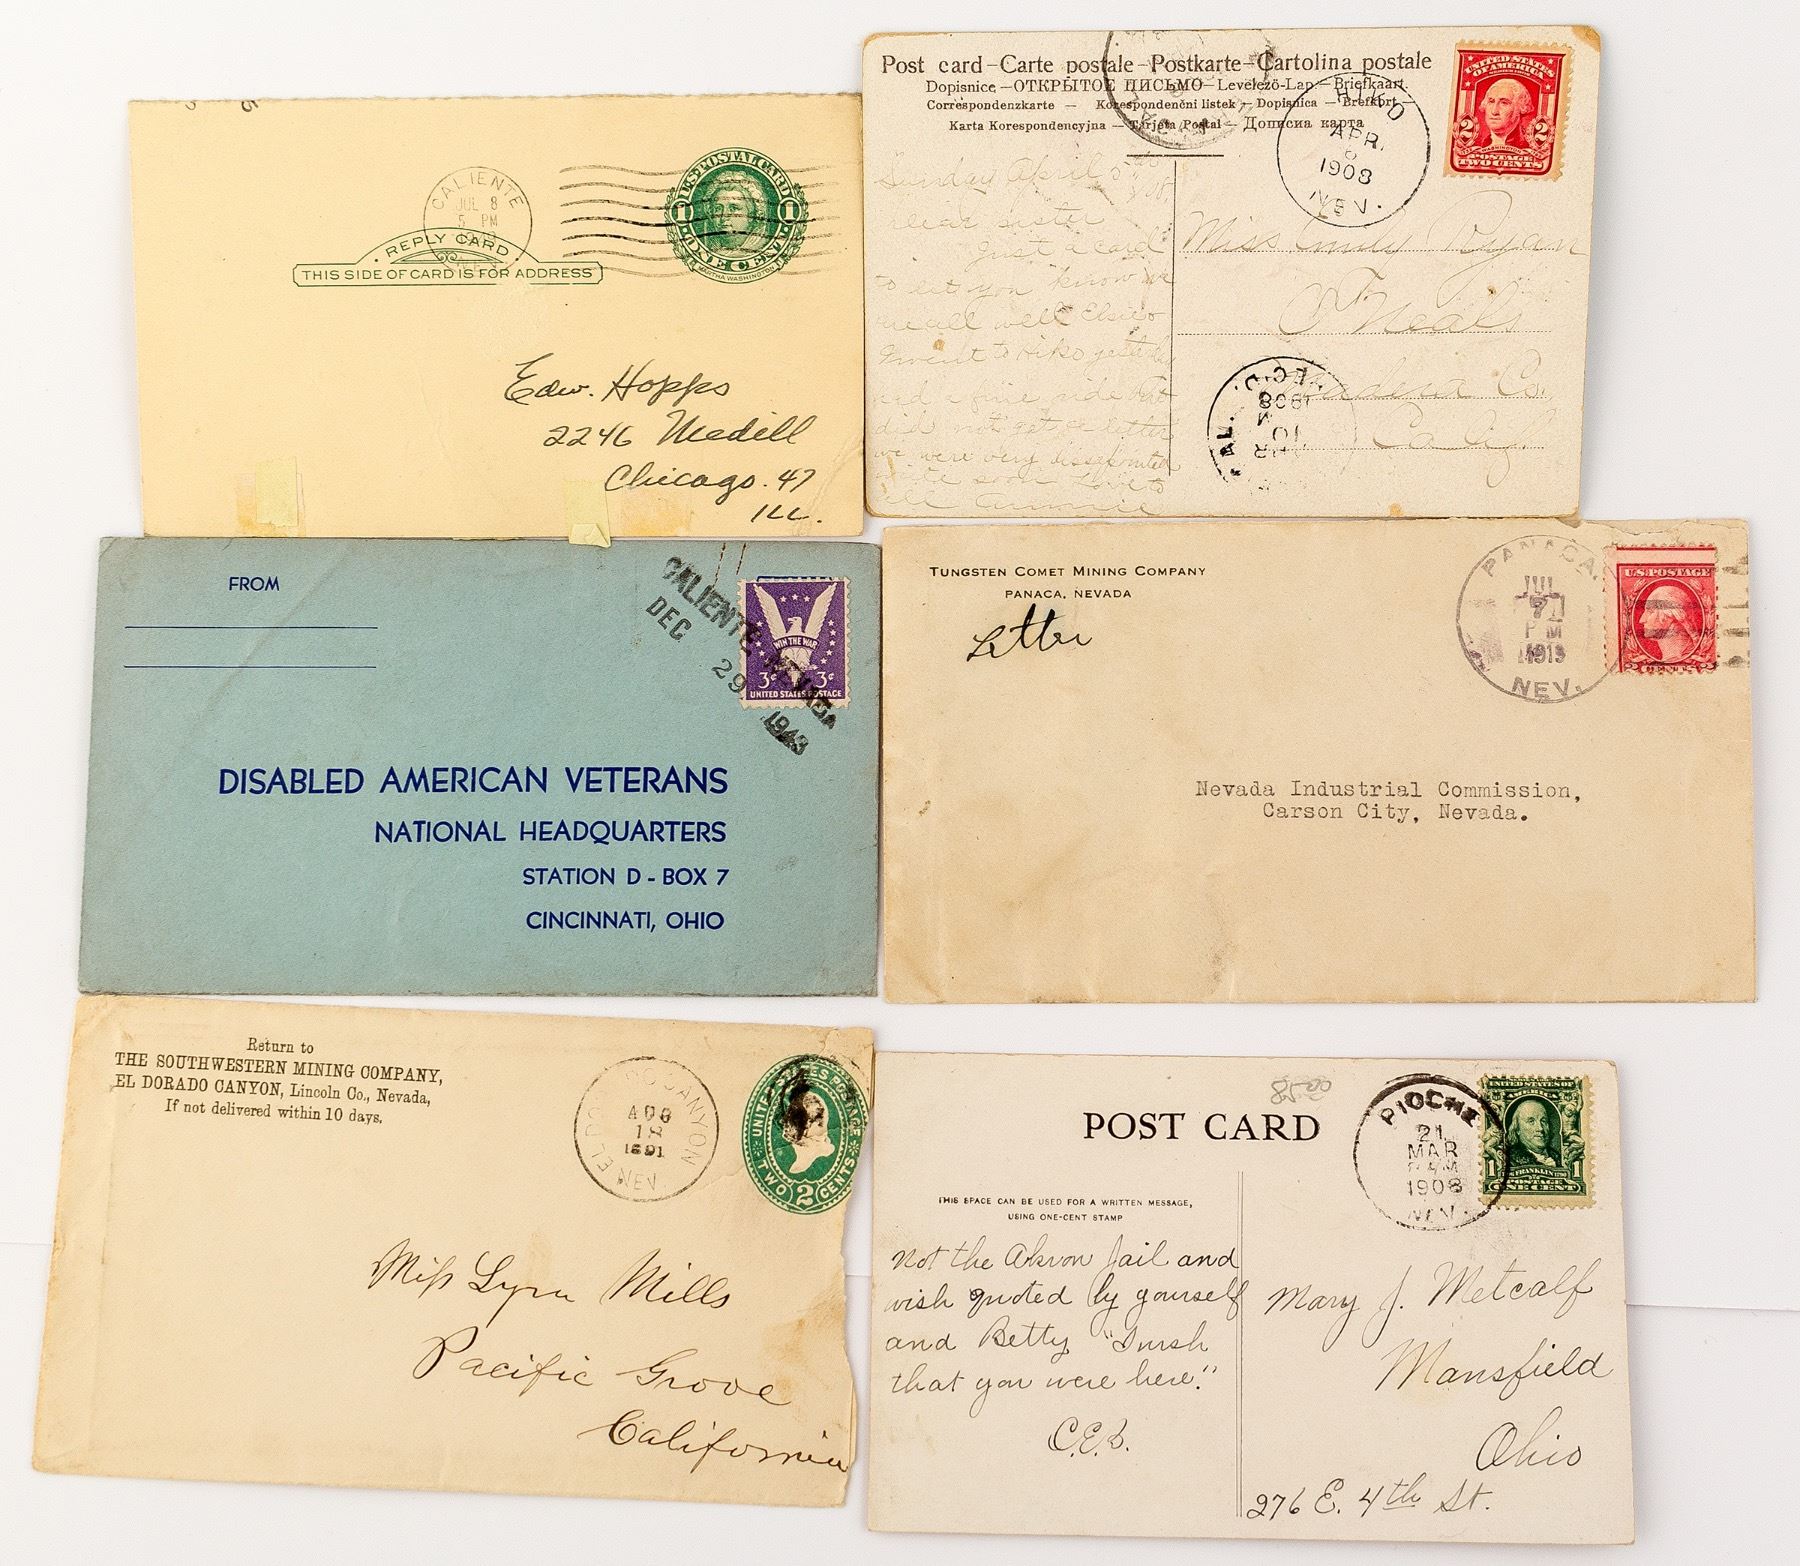 CALIENTE
JUL 8
5 PM
REPLY CARD
THIS SIDE OF CARD IS FOR ADDRESS
U.S. POSTAL CARD
1 1
ONE CENT
MARTHA WASHINGTON
Edw. Hopps
2246 Medill
Chicago. 47
ILL.
Post card – Carte postale – Postkarte – Cartolina postale
Dopisnice – ОТКРЫТОЕ ПИСЬМО – Levelező-Lap – Briefkaart.
Correspondenzkarte – Korespondenční listek – Dopisnica – Brefkort –
Karta Korespondencyjna – Tarjeta Postal – Дописна карта
HIKO
APR.
6
1908
NEV.
UNITED STATES
OF AMERICA
2 2
WASHINGTON
POSTAGE
TWO CENTS
Sunday April 5th
/08.
Dear sister
Just a card
to let you know we
are all well Elsie &
I went to Hiko yesterday
had a fine ride but
did not get a letter
we were very dissapointed
write soon Love to
all Annie
Miss Emily Ryan
O'Neals
Madera Co.
Calif.
REC'D.
1908
M
10
APR
CAL.
FROM
CALIENTE, NEVADA
DEC 29 1943
WIN THE WAR
3¢ 3¢
UNITED STATES POSTAGE
DISABLED AMERICAN VETERANS
NATIONAL HEADQUARTERS
STATION D - BOX 7
CINCINNATI, OHIO
TUNGSTEN COMET MINING COMPANY
PANACA, NEVADA
Letter
PANACA.
JUL
7
PM
NEV.
U.S. POSTAGE
2 CENTS 2
Nevada Industrial Commission,
Carson City, Nevada.
Return to
THE SOUTHWESTERN MINING COMPANY,
EL DORADO CANYON, Lincoln Co., Nevada,
If not delivered within 10 days.
ELDORADO CANYON
1891
NEV.
UNITED STATES POSTAGE
TWO 2 CENTS
Miss Lyra Mills
Pacific Grove
California
8500
POST CARD
THIS SPACE CAN BE USED FOR A WRITTEN MESSAGE,
USING ONE-CENT STAMP
PIOCHE
21
MAR
1908
NEV.
UNITED STATES OF
AMERICA
1 1
FRANKLIN
POSTAGE
ONE CENT
Not the Akron Jail and
wish quoted by yourself
and Betty "I wish
that you were here."
Mary J. Metcalf
Mansfield
Ohio
276 E. 4th St.